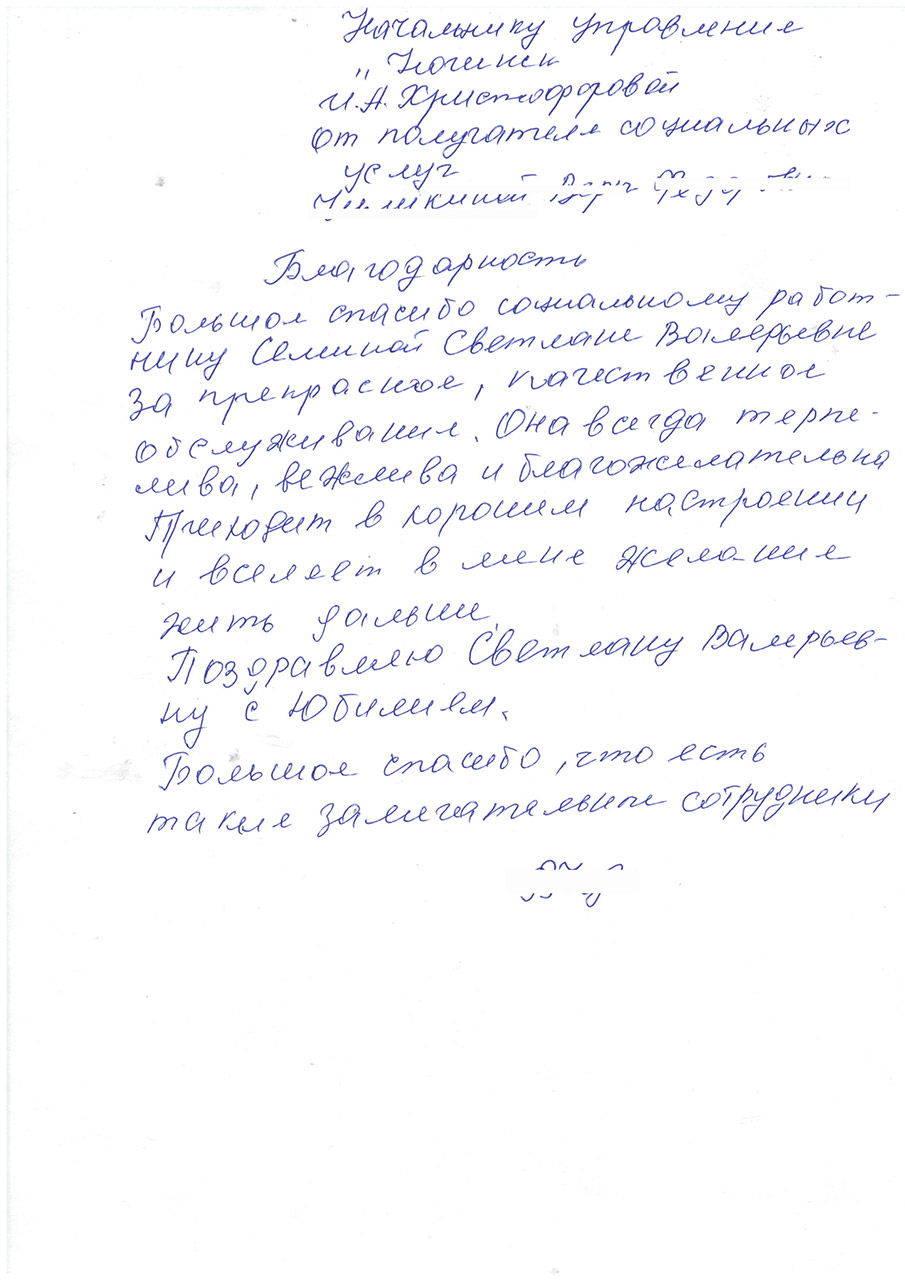 Начальнику Управления
„Ногинск
И.А. Христофоровой
от получателя социальных
услуг
Благодарность
Большое спасибо социальному работ-
нику Семиной Светлане Валерьевне
за прекрасное, качественное
обслуживание. Она всегда терпе-
лива, вежлива и благожелательна
Приходит в хорошем настроении
и вселяет в мене желание
жить дальше.
Поздравляю Светлану Валерьев-
ну с Юбилием.
Большое спасибо, что есть
такие замечательные сотрудники